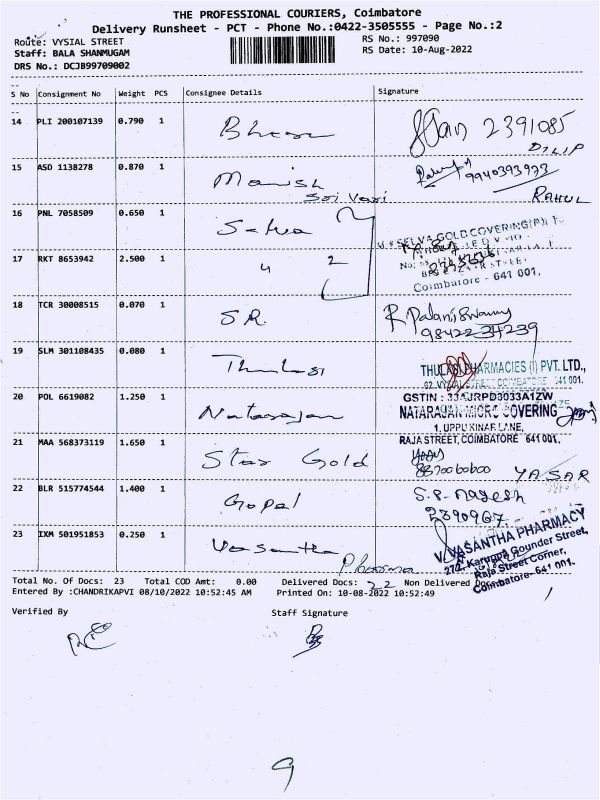 THE PROFESSIONAL COURIERS, Coimbatore
Delivery Runsheet - PCT - Phone No.:0422-3505555 - Page No.:2
Route: VYSIAL STREET RS No.: 997090
Staff: BALA SHANMUGAM RS Date: 10-Aug-2022
DRS No.: DCJB99709002
S No Consignment No Weight PCS Consignee Details Signature
14 PLI 200107139 0.790 1 2391085
DILIP
15 ASD 1138278 0.870 1 Manish 9940393973
Sri Vari RAHUL
16 PNL 7058509 0.650 1 SELVA GOLD COVERING (P)
17 RKT 8653942 2.500 1 2
Coimbatore - 641 001.
18 TCR 30008515 0.070 1 S.R. R. Palaniswamy
9842234239
19 SLM 301108435 0.080 1 Thulasi THULASI PHARMACIES (I) PVT. LTD.,
62, VYSIAL STREET COIMBATORE 641 001.
20 POL 6619082 1.250 1 Natarajan GSTIN : 33AJRPD3033A1ZW
NATARAJAN MICRO COVERING
1, UPPU KINAR LANE,
21 MAA 568373119 1.650 1 Star Gold RAJA STREET, COIMBATORE 641 001.
YASAR
22 BLR 515774544 1.400 1 Gopal S.P. Nagesh
2390967
23 IXM 501951853 0.250 1 Vasantha Pharma V. VASANTHA PHARMACY
272, Karuppa Gounder Street,
Raja Street Corner,
Coimbatore- 641 001.
Total No. Of Docs: 23 Total COD Amt: 0.00 Delivered Docs: 22 Non Delivered Docs:
Entered By :CHANDRIKAPVI 08/10/2022 10:52:45 AM Printed On: 10-08-2022 10:52:49
Verified By Staff Signature
9